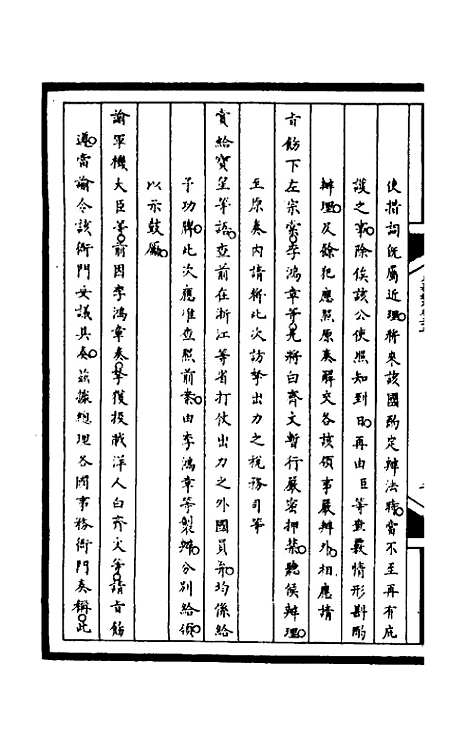 使措詞既屬近理。將來該國酌定辦法。諒當不至再有庇
護之事。除俟該公使照知到日。再由臣等熟覈情形斟酌
辦理。及餘犯應照原奏解交各該領事嚴辦外。相應請
旨飭下左宗棠。李鴻章等。先將白齊文暫行嚴密押禁。聽候辦理。
至原奏內請將此次訪拏出力之稅務司等
賞給寶星等語。查前在浙江等省打仗出力之外國員弁。均係給
予功牌。此次應准查照前案。由李鴻章等製辦。分別給領。
以示鼓勵。
諭軍機大臣等。前因李鴻章奏。拏獲投賊洋人白齊文等。請旨飭
遵。當諭令該衙門妥議具奏。茲據總理各國事務衙門奏稱。此